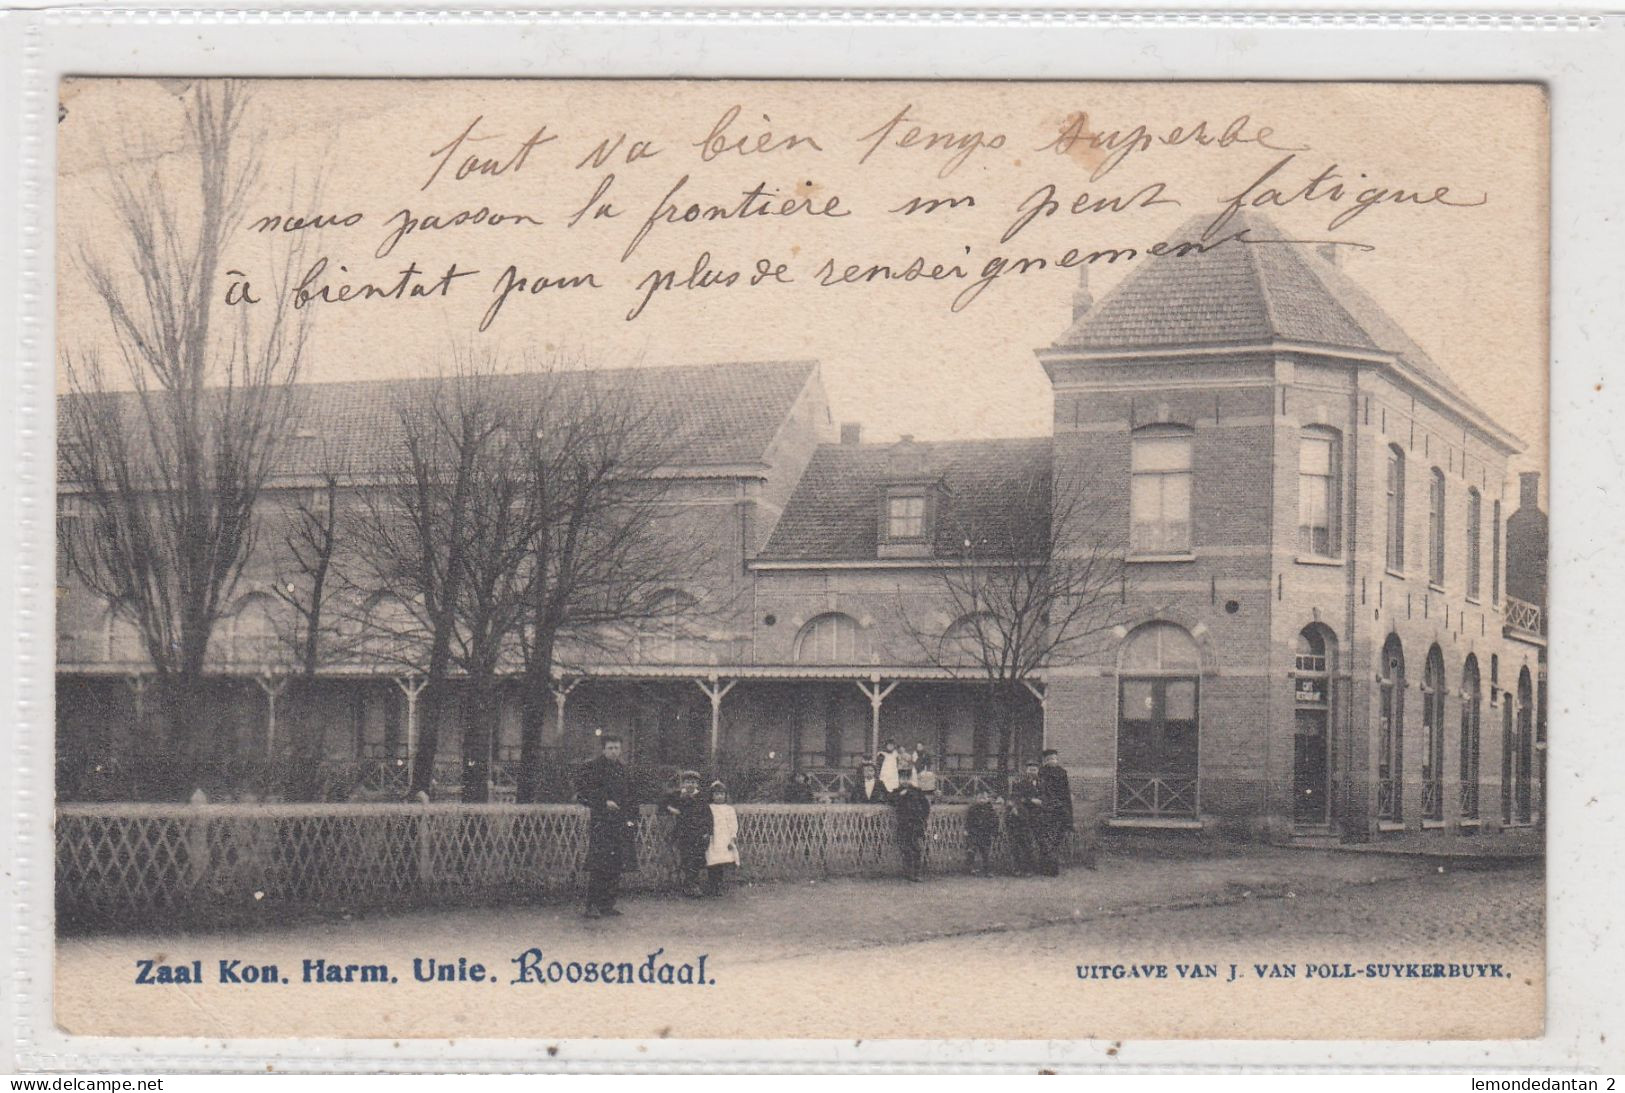 tout va bien temps superbe
nous passon la frontière un peut fatigue
à bientat pour plus de renseignement
Zaal Kon. Harm. Unie. Roosendaal.
UITGAVE VAN J. VAN POLL-SUYKERBUYK.
Delcampe.net
lemondedantan 2